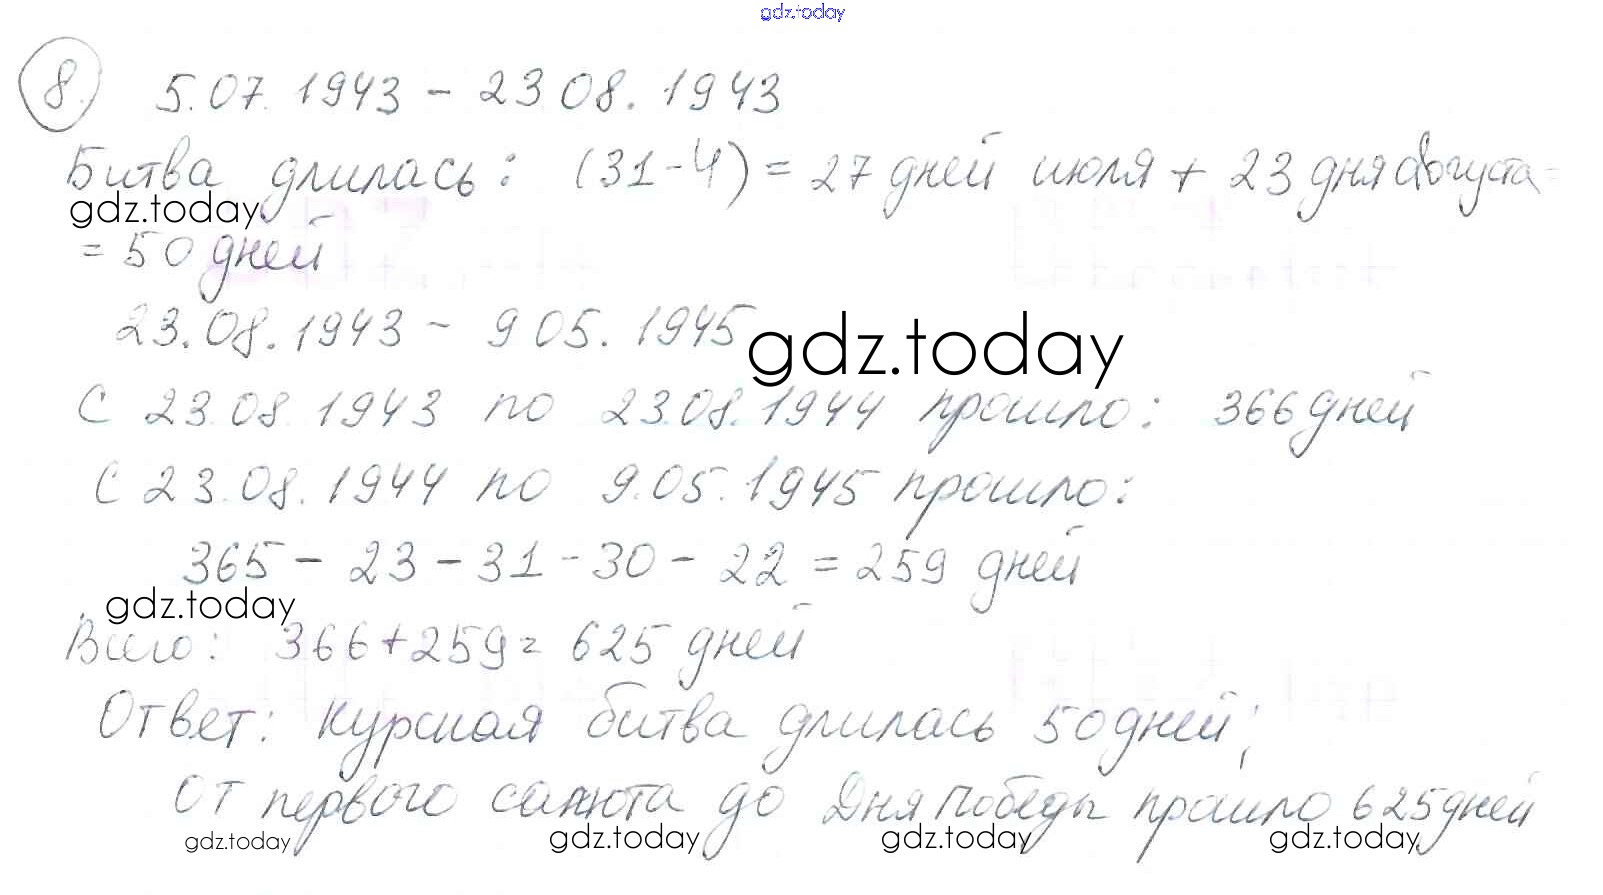 gdz.today
8. 5.07. 1943 - 23 08. 1943
Битва длилась: (31-4) = 27 дней июля + 23 дня августа =
gdz.today
= 50 дней
23.08.1943 - 9 05. 1945
gdz.today
С 23.08. 1943 по 23.08.1944 прошло: 366 дней
С 23.08. 1944 по 9.05.1945 прошло:
365 - 23 - 31 - 30 - 22 = 259 дней
gdz.today
Всего: 366+259= 625 дней
Ответ: Курская битва длилась 50 дней;
От первого салюта до Дня Победы прошло 625 дней
gdz.today gdz.today gdz.today gdz.today